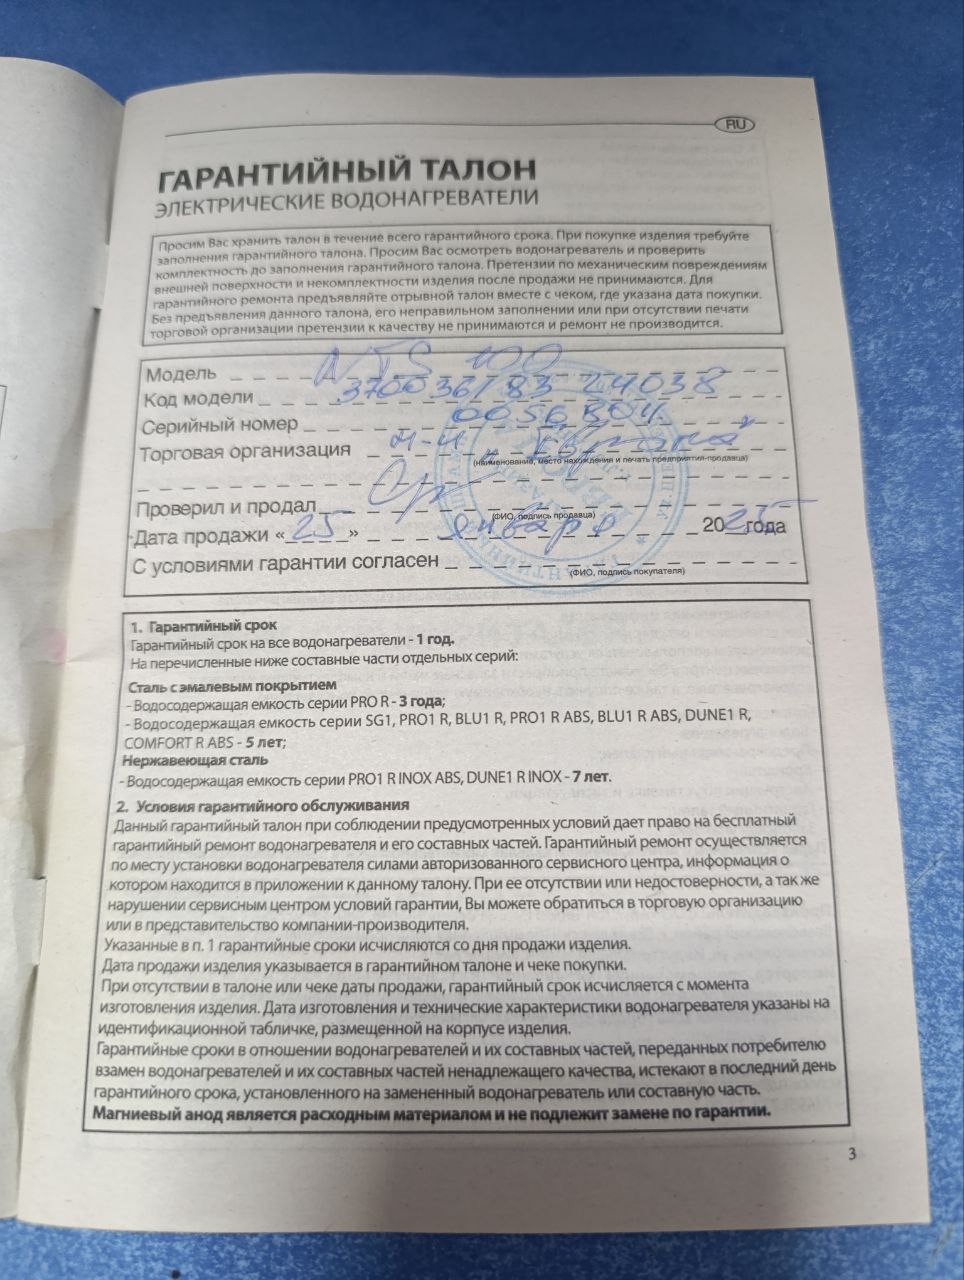 RU
ГАРАНТИЙНЫЙ ТАЛОН
ЭЛЕКТРИЧЕСКИЕ ВОДОНАГРЕВАТЕЛИ
Просим Вас хранить талон в течение всего гарантийного срока. При покупке изделия требуйте
заполнения гарантийного талона. Просим Вас осмотреть водонагреватель и проверить
комплектность до заполнения гарантийного талона. Претензии по механическим повреждениям
внешней поверхности и некомплектности изделия после продажи не принимаются. Для
гарантийного ремонта предъявляйте отрывной талон вместе с чеком, где указана дата покупки.
Без предъявления данного талона, его неправильном заполнении или при отсутствии печати
торговой организации претензии к качеству не принимаются и ремонт не производится.
Модель NTS 100
Код модели 370036183 24038
Серийный номер 0056804
Торговая организация м-н
(наименование, место нахождения и печать предприятия-продавца)
Проверил и продал
(ФИО, подпись продавца)
Дата продажи «25» Января 2025 года
С условиями гарантии согласен
(ФИО, подпись покупателя)
1. Гарантийный срок
Гарантийный срок на все водонагреватели - 1 год.
На перечисленные ниже составные части отдельных серий:
Сталь с эмалевым покрытием
- Водосодержащая емкость серии PRO R - 3 года;
- Водосодержащая емкость серии SG1, PRO1 R, BLU1 R, PRO1 R ABS, BLU1 R ABS, DUNE1 R,
COMFORT R ABS - 5 лет;
Нержавеющая сталь
- Водосодержащая емкость серии PRO1 R INOX ABS, DUNE1 R INOX - 7 лет.
2. Условия гарантийного обслуживания
Данный гарантийный талон при соблюдении предусмотренных условий дает право на бесплатный
гарантийный ремонт водонагревателя и его составных частей. Гарантийный ремонт осуществляется
по месту установки водонагревателя силами авторизованного сервисного центра, информация о
котором находится в приложении к данному талону. При ее отсутствии или недостоверности, а так же
нарушении сервисным центром условий гарантии, Вы можете обратиться в торговую организацию
или в представительство компании-производителя.
Указанные в п. 1 гарантийные сроки исчисляются со дня продажи изделия.
Дата продажи изделия указывается в гарантийном талоне и чеке покупки.
При отсутствии в талоне или чеке даты продажи, гарантийный срок исчисляется с момента
изготовления изделия. Дата изготовления и технические характеристики водонагревателя указаны на
идентификационной табличке, размещенной на корпусе изделия.
Гарантийные сроки в отношении водонагревателей и их составных частей, переданных потребителю
взамен водонагревателей и их составных частей ненадлежащего качества, истекают в последний день
гарантийного срока, установленного на замененный водонагреватель или составную часть.
Магниевый анод является расходным материалом и не подлежит замене по гарантии.
3